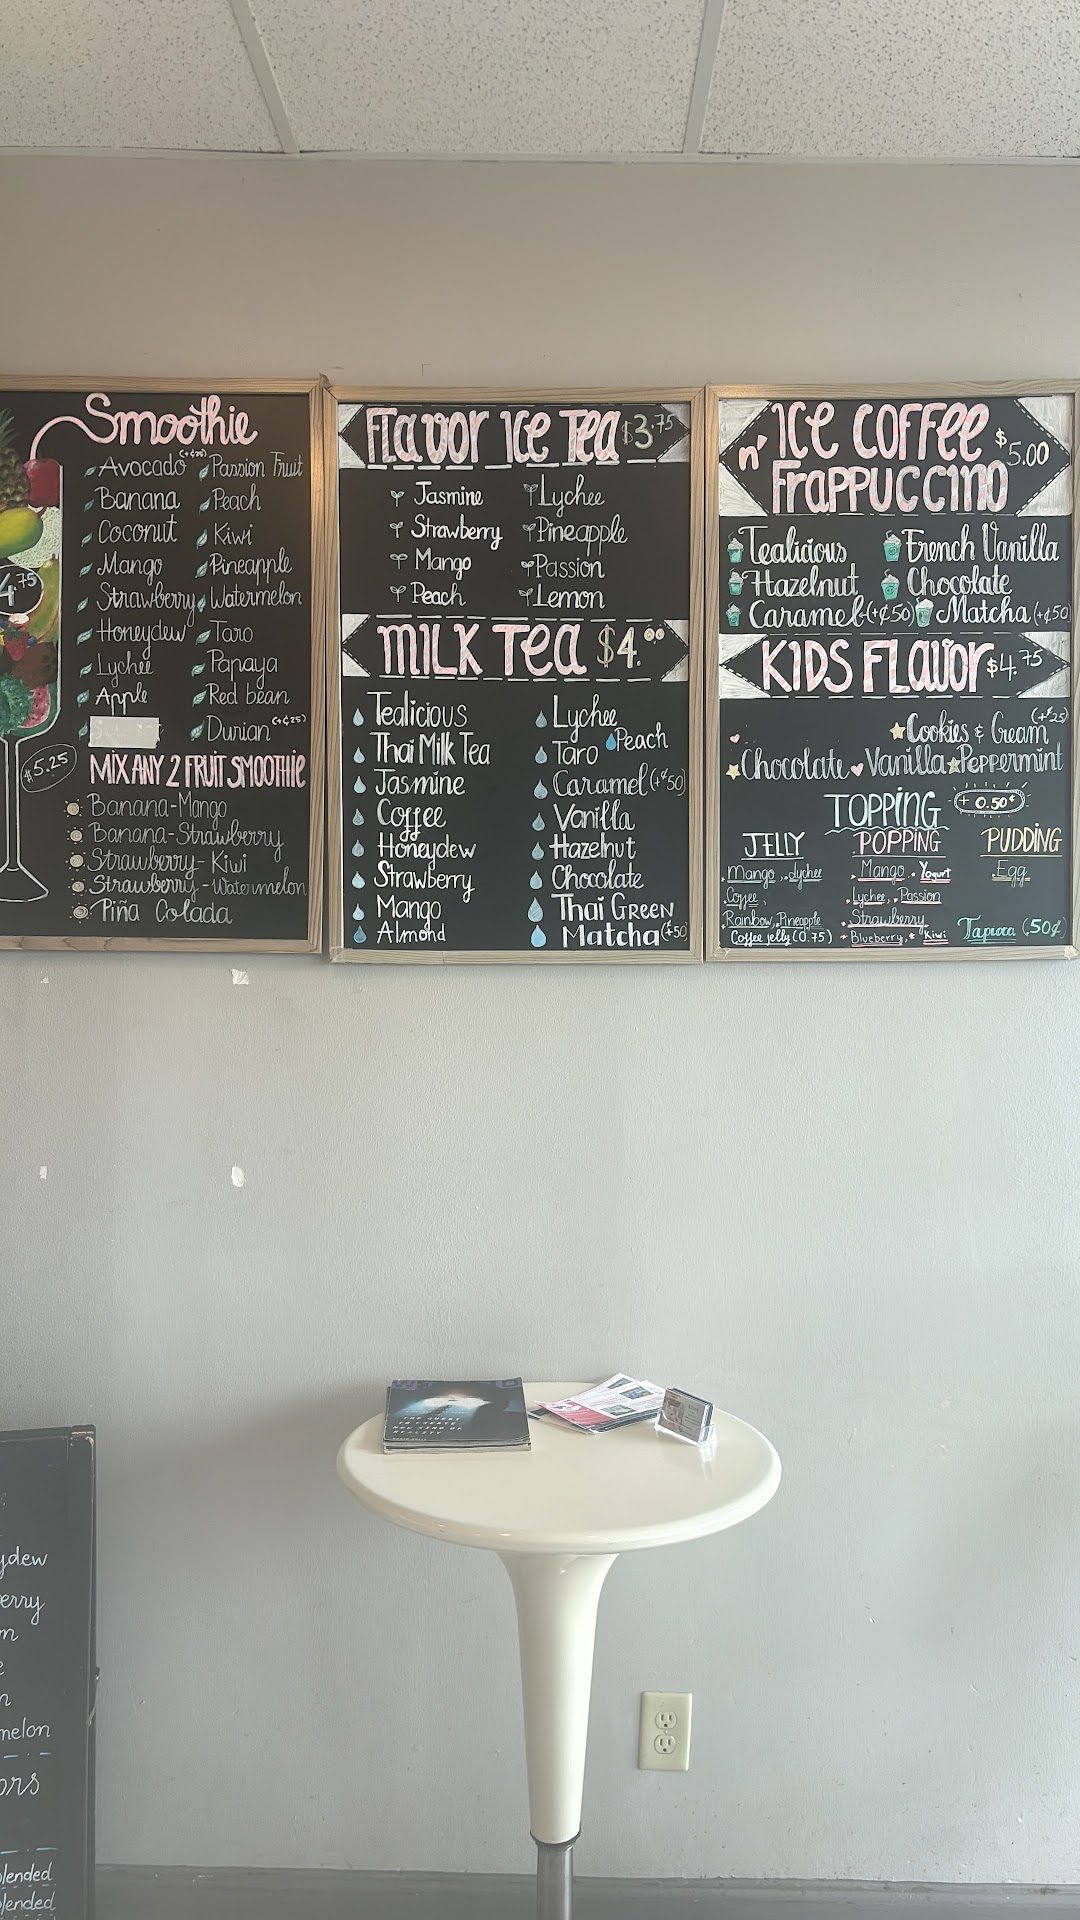 Smoothie
Avocado (+¢25) Passion Fruit
Banana Peach
Coconut Kiwi
Mango Pineapple
Strawberry Watermelon
Honeydew Taro
Lychee Papaya
Apple Red bean
Durian (+¢25)
4.75
$5.25
MIX ANY 2 FRUIT SMOOTHIE
Banana-Mango
Banana-Strawberry
Strawberry-Kiwi
Strawberry-Watermelon
Piña Colada
Flavor Ice Tea $3.75
Jasmine Lychee
Strawberry Pineapple
Mango Passion
Peach Lemon
MILK Tea $4.00
Tealicious Lychee
Thai Milk Tea Taro Peach
Jasmine Caramel (+¢50)
Coffee Vanilla
Honeydew Hazelnut
Strawberry Chocolate
Mango Thai GREEN
Almond Matcha (+50)
n' Ice COFFee $5.00
FraPPUCCINO
Tealicious French Vanilla
Hazelnut Chocolate
Caramel (+¢50) Matcha (+¢50)
KIDS FLavor $4.75
Cookies & Cream (+¢25)
Chocolate Vanilla Peppermint
TOPPING + 0.50¢
JELLY POPPING PUDDING
Mango, Lychee Mango, Yogurt Egg
Coffee, Lychee, Passion
Rainbow, Pineapple Strawberry
Coffee jelly (0.75) Blueberry, Kiwi Tapioca (.50¢
THE QUEST
REALITY
ydew
erry
m
e
n
melon
ors
lended
lended